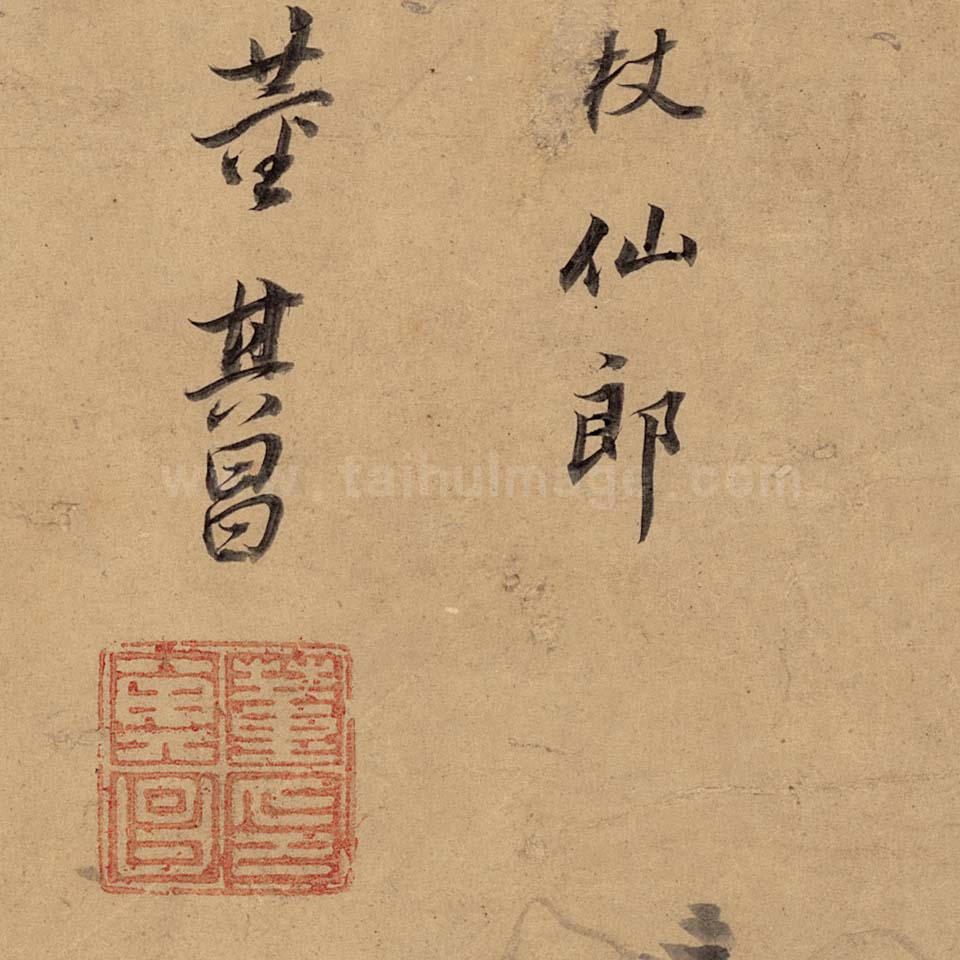 杖仙郎
董其昌
www.taihuImage.com